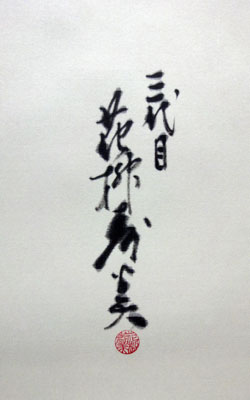 三代目
花柳寿美